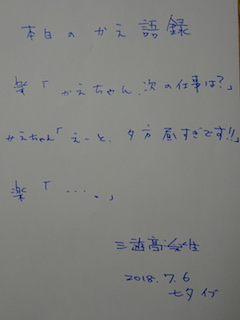 本日のかえ語録
楽「かえちゃん、次の仕事は?」
かえちゃん「えーと、夕方昼すぎです!!」
楽「・・・・。」
三遊亭
2018.7.6
七夕イブ